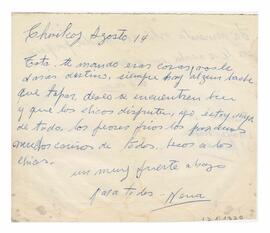 Choikes, Agosto, 14
Tota, te mando esas cosas, vos le
daras destino, siempre hay algun bache
que tapar, deseo se encuentren bien
y que los chicos disfruten, yo, estoy
de todo, los peores frios los pasamos
muchos cariños de todos, besos a los
chicos.
un muy fuerte abrazo
para todos - Nena